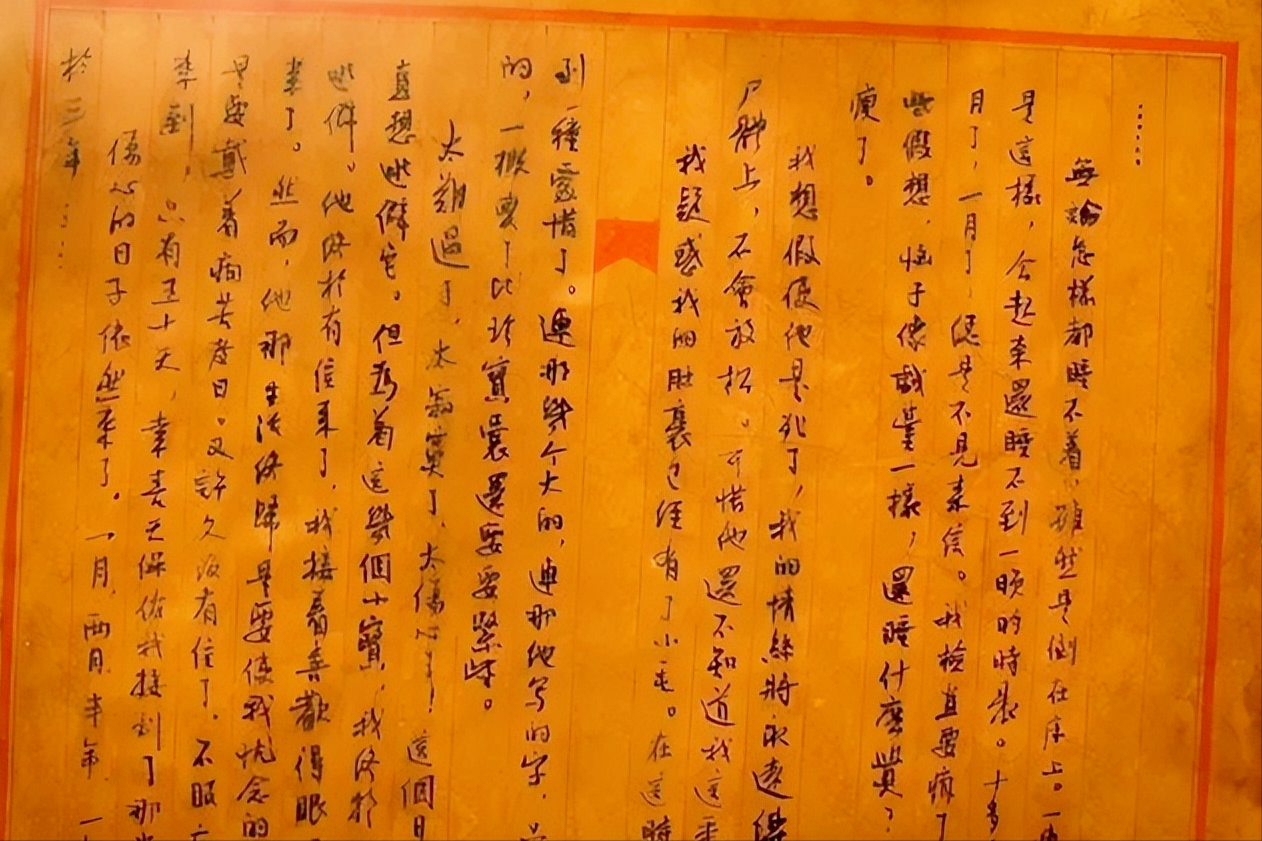 ……
無論怎樣都睡不着，雖然是倒在床上。一
是這樣，合起來還睡不到一頓的時晨。十多
月了，一月了，總是不見來信。我檢直要瘋了
些假想，恼子像戲臺一樣，還睡什麼覺？
瘦了。
我想假使他是死了，我的情絲將永遠
尸體上，不會放松。可惜他還不知道我這
我疑惑我的肚裏已經有了小毛。在這時
到一種靈情了。連那幾个大的，連那他写的字，
的，一概要了比珍寶裳還要要緊些。
太難過了，太氣寞了，太傷心了！這個日
真想逃僻它。但為着這幾個小寶，我終於
逃僻。他終於有信來了，我接着喜歡得眼
來了。然而，他那生活終歸是要使我忧念的
是要戴着痼苦度日。又許久沒有信了。不眼
來到，只有五十天，幸喜天保佑我接到了那
傷心的日子依然來了。一月，两月，半年，一
於三年……